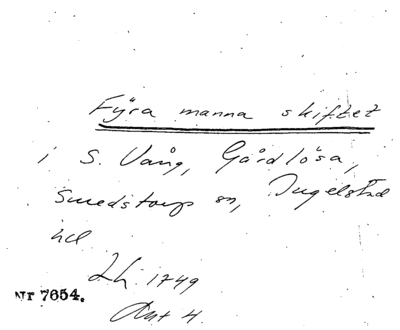 Fyra manna skiftet
i S. Vång, Gårdlösa,
Smedstorps sn, Ingelstad
hd
Lh. 1749
Akt 4.
Nr 7654.